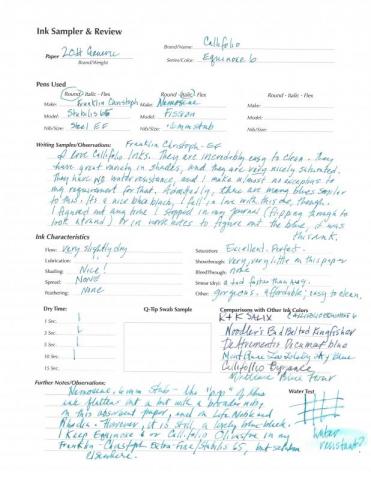 Ink Sampler & Review
Paper 20# Generic
Brand/Weight
Brand/Name: Callifolio
Series/Color: Equinoxe 6
Pens Used
Round - Italic - Flex
Round - Italic - Flex
Round - Italic - Flex
Make: Franklin Christoph
Make: Nemosine
Make:
Model: Stabilis 65
Model: Fission
Model:
Nib/Size: Steel EF
Nib/Size: .6mm stub
Nib/Size:
Writing Samples/Observations: Franklin Christoph - EF
I love Callifolio Inks. They are incredibly easy to clean. They
have great variety in shades, and they are very nicely saturated.
They have NO water resistance, and I make almost no exceptions to
my requirement for that. Admittedly, there are many blues similar
to this. It's a nice blue black, I fell in love with this one, though.
I figured out any time I stopped in my journal (flipping through to
look around) or in work notes to figure out the blue, it was
this ink.
Ink Characteristics
Flow: Very slightly dry
Saturation: Excellent. Perfect.
Lubrication:
Showthrough: Very, very little on this paper
Shading: Nice!
BleedThrough: none
Spread: NONE
Smear (dry): a tad faster than away.
Feathering: None
Other: gorgeous, affordable, easy to clean.
Dry Time:
Q-Tip Swab Sample
Comparisons with Other Ink Colors
1 Sec.
3 Sec.
5 Sec.
10 Sec.
15 Sec.
R+K SALIX
CALLIFOLIO EQUINOXE 6
Noodler's Bad Belted Kingfisher
De Atramentis Document blue
Mont Blanc Leo Tolstoy Sky Blue
Callifolio Byzance
Blue
Further Notes/Observations:
Water Test
Nemosine .6mm Stub - the "pop" of this
ink flattens out a bit with a broader nib
on this absorbent paper, and on Life Noble and
Rhodia. However, it is still a lovely blue-black.
I keep Equinoxe 6 or Callifolio Olivastre in my
Franklin-Christoph Extra-Fine/Stabilis 65, but seldom
elsewhere.
water
resistant?